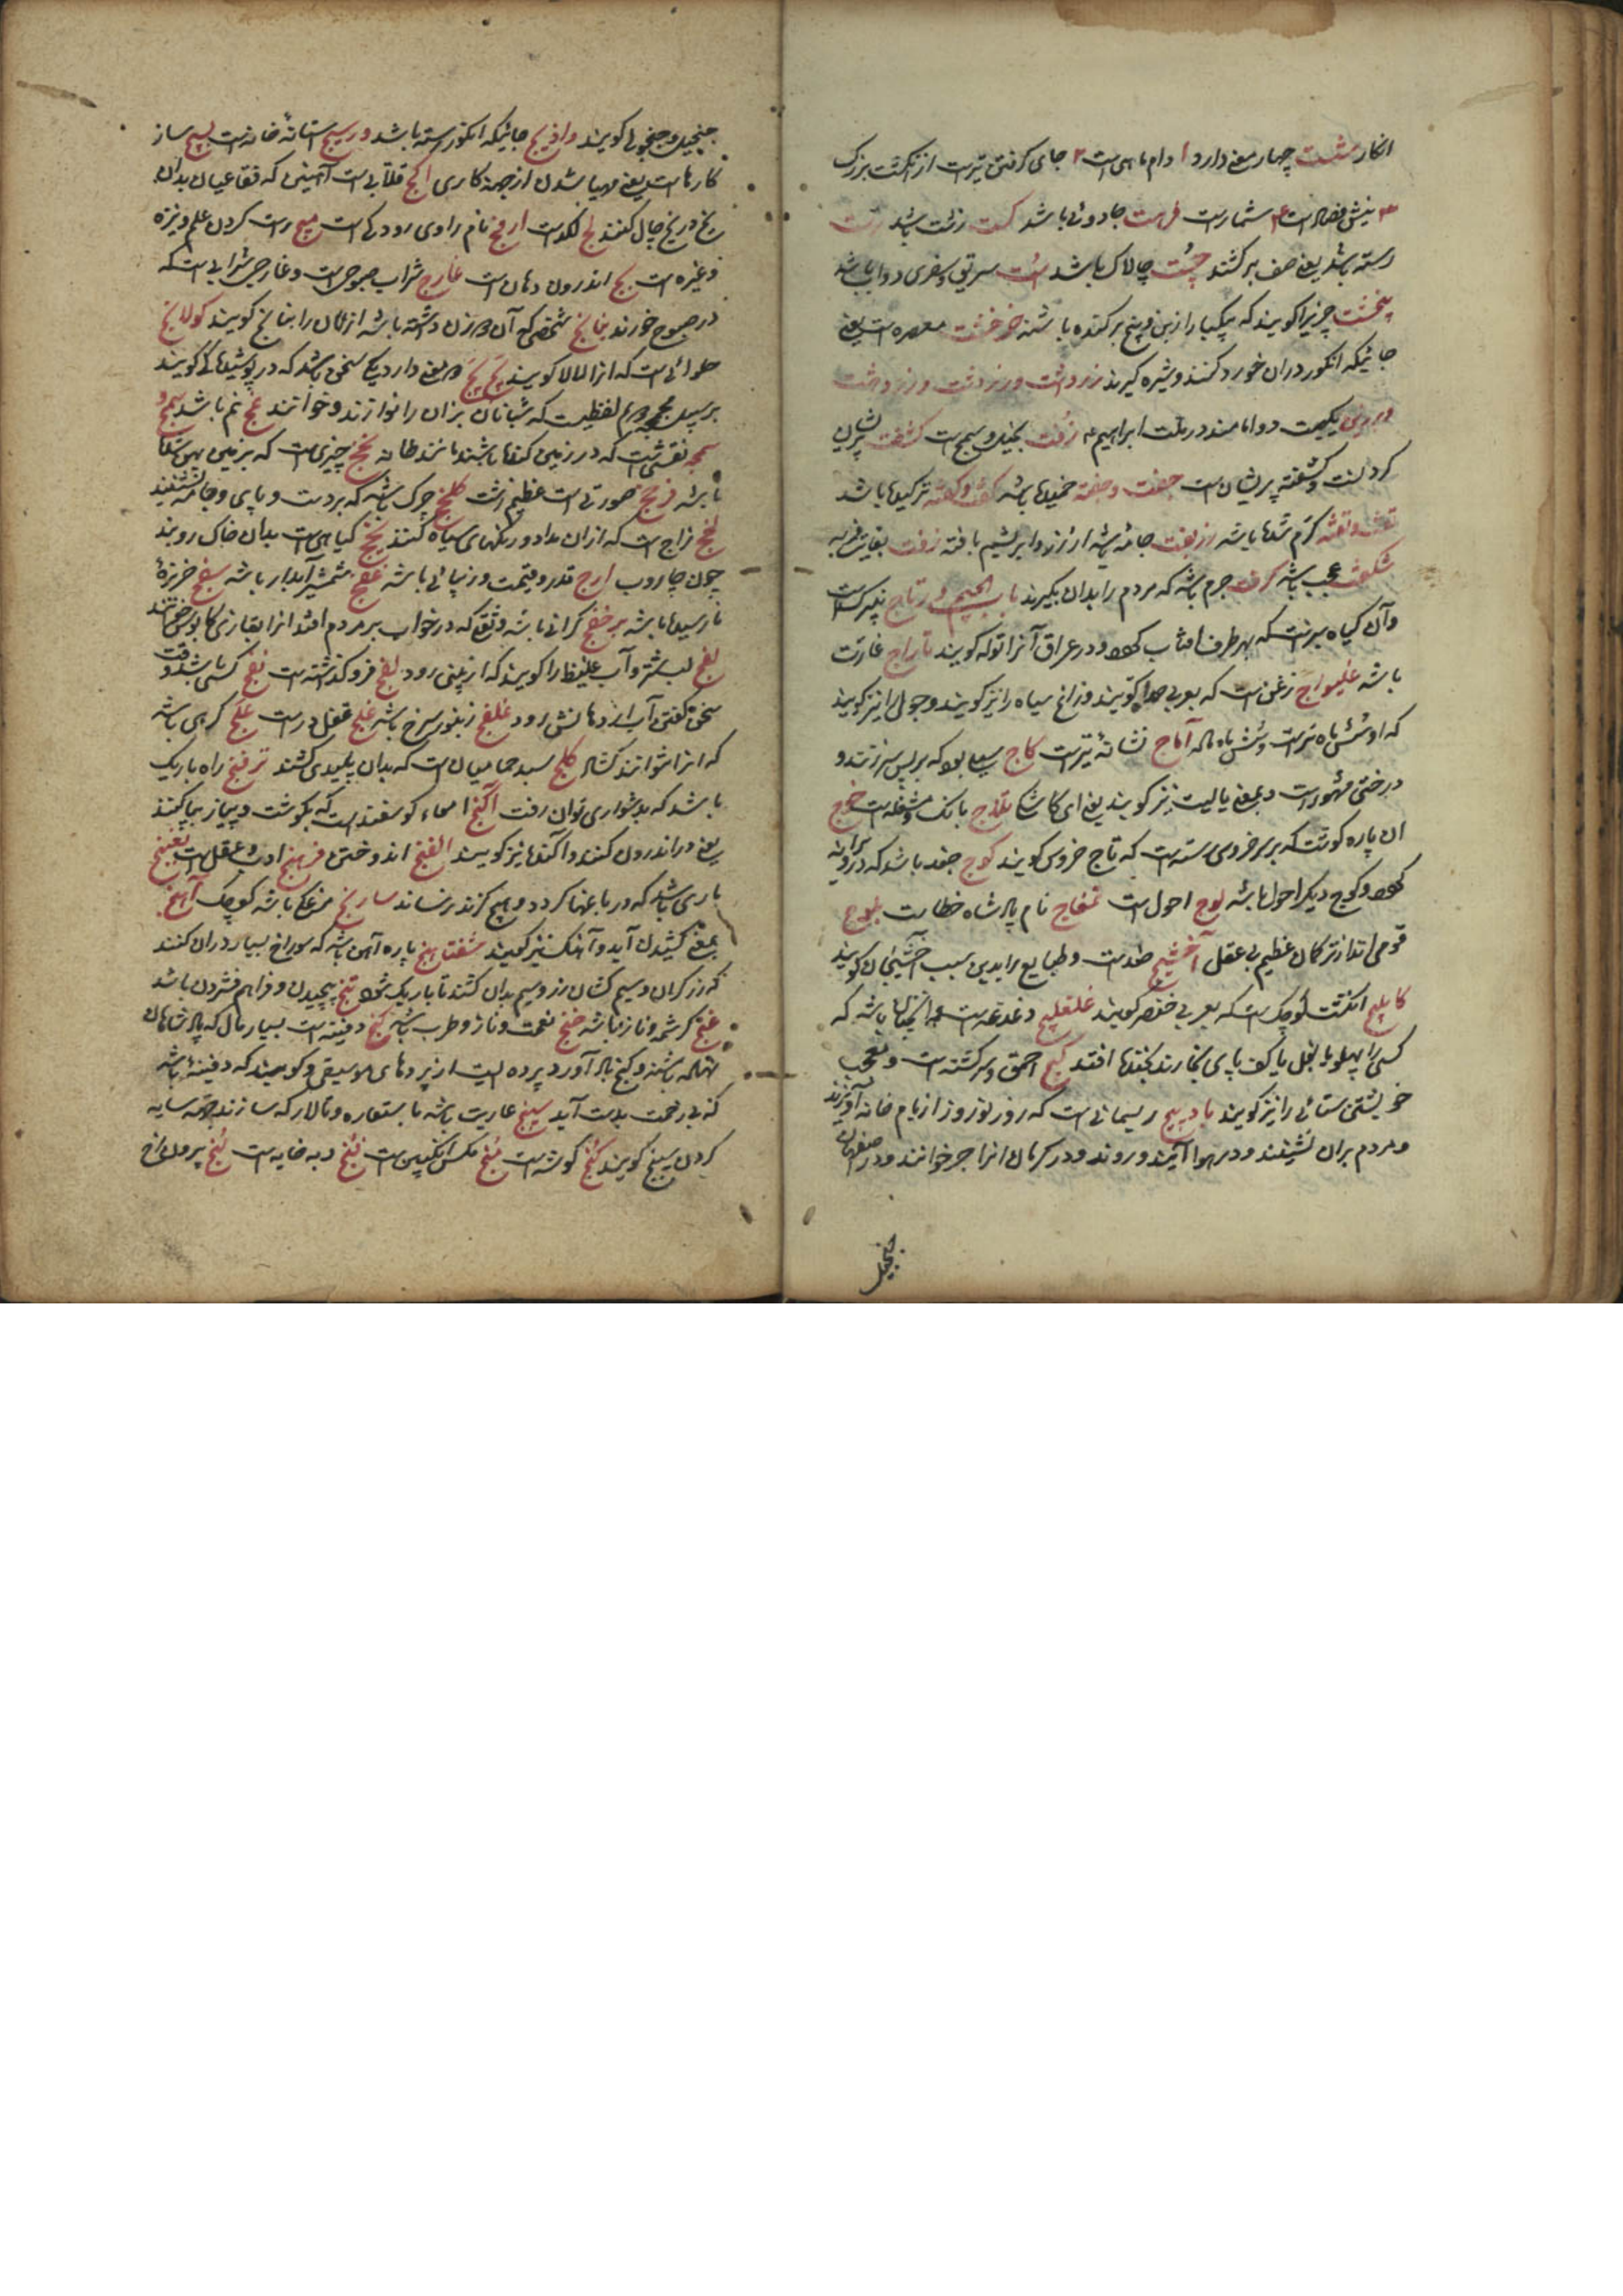 انکار مشت چهار معنی دارد ۱ دام ماهیست ۲ جای کرفتن تیرست از انکشت بزرک
۳ نیش فصادست ۴ شمارست فرست جادوئی باشد کست زشت باشد رست
رسته باشد یعنی صف برکشند چست چالاک باشد
چیزیرا کویند که بیکبار از بن و بیخ برکنده باشند چرخشت معصره است یعنی
جائیکه انکور دران خورد کنند و شیره کیرند زردشت و زردشت و زردهشت
حکیمست دوامامند در ملت ابراهیم زفت بخیل و سمج است کشفت پریشان
کردنست و کشفته پریشان است جفت و جفته خمیدها باشد کفت و کفته ترکیدها باشد
تفت و تفته کرم شدها باشد زربفت جامه باشد از زر و ابریشم بافته زفت بغایت فربه
شکفت عجب باشد کرفت جرم باشد که مردم را بدان بکیرند باب الجیم ورتاج نیرکست
وآن کیاه سرنست که بهر طرف افتاب کردد و در عراق آنرا توله کویند تاراج غارت
باشد غلیواج زغن است که بعربی حداه کویند و زاغ سیاه را نیز کویند و جول را نیز کویند
که او شش ماه نرست و شش ماه ماده آماج نشانه تیرست کاج سیلی بود که بر پس سر زنند و
درختی مشهورست و بمعنی یا لیت نیز کویند یعنی ای کاشکی تلاج بانک و مشغله است خوج
ان پاره کوشت که بر سر خروس رستست که تاج خروس کویند کوج جغد باشد که در ویرانه
کردد و کوج دیکر احول باشد لوج احول است تمغاج نام پادشاه خطاست بلوج
قومی اند از ترکان عظیم بی عقل آخشیج ضدست و طبایع را بدین سبب آخشیجان کویند
کابلیج انکشت کوچک است که بعربی خنصر کویند غلغلیج دغدغه است و آنچنان باشد که
کسی را پهلو یا بغل یا کف پای بخارند بخنده افتد کیج احمق و سرکشته است و معجب
خویشتن ستائی را نیز کویند بادپیچ ریسمانی است که روز نوروز از بام خانه آویزند
و مردم بران نشینند و در هوا آیند و روند و در کرمان انرا جر خوانند و در اصفهان
جنجیل
جنجیل و جنجولی کویند وادیج جائیکه انکور رسته باشد ورسیج استانه خانه است بسیج ساز
کارها است یعنی مهیا شدن از جهة کاری اکج قلابی است آهنین که فقاعیان بدان
یخ در یخ چال کنند لج لکد است نام راوی رودکی است میج راست کردن علم و نیزه
وغیره است بج اندرون دهان است غارج شراب صبوحی است وغارجی شرابی است که
در صبوح خورند بنانج شخصی که آن دو زن داشته باشد از ایشان را بنانج کویند کولانج
حلوائی است که انرا لابلا کویند دو معنی دارد یکی سخنی باشد که در پوشیدها کی کویند
لفظیست که شبانان بزان را نوازند و خوانند غنج نم باشد سمج و
سمجه نقشی است که در زمین کنده باشند مانند خانه چیزی است که بزمین
باشد فرخج صورتی است عظیم زشت کلخج چرک باشد که بر دست و پای و جامه نشیند
لخج زاج است که ازان مداد و رنکهای سیاه کنند کیاهی است بدان خاک روبند
چون جاروب ارج قدر و قیمت و زیبائی باشد غفج شمشیر آبدار باشد سفج خربزه
نارسیده باشد برخفج کرانی باشد و ثقلی که در خواب بر مردم افتد انرا بتازی کابوس خوانند
لفج لب شتر و آب غلیظ را کویند که از بینی رود لفج فروکذاشته است نفج کسی باشد که وقت
سخن کفتن آب از دهانش رود غلفج زنبور سرخ باشد غلج قفل درست غلج کرهی باشد
که انرا نتوانند کشاد کلج سبد حمامیان است که بدان پلیدی کشند ترفنج راه باریک
باشد که بدشواری توان رفت آکنج امعاء کوسفند است که بکوشت و پیاز بیاکنند
یعنی در اندرون کنند و آکنده نیز کویند الفنج اندوختن فرهنج ادب و عقل است
ماری باشد که در باغها کردد و هیچ کزند نرساند سارنج مرغکی باشد کوچک آهنج
بمعنی کشیدن آید و آهنک نیز کویند شفتاهنج پاره آهن باشد که سوراخ بسیار دران کنند
که زرکران و سیم کشان زر و سیم بدان کشند تا باریک شود تنج پیچیدن و فراهم فشردن باشد
غنج کرشمه و ناز باشد خنج نعمت و ناز و طرب باشد کنج دفینه است بسیار مال که پادشاهان
نهاده باشند و کنج بادآورد پرده ایست از پردهای موسیقی و کویند که دفینه باشد
که بی زحمت بدست آید سپنج عاریت باشد یا بستعاره و تالار که سازند جهة سایه
کردن سپنج کویند کنج کوشه است منج مکس انکبین است دبه خایه است لنج بیرون رخ